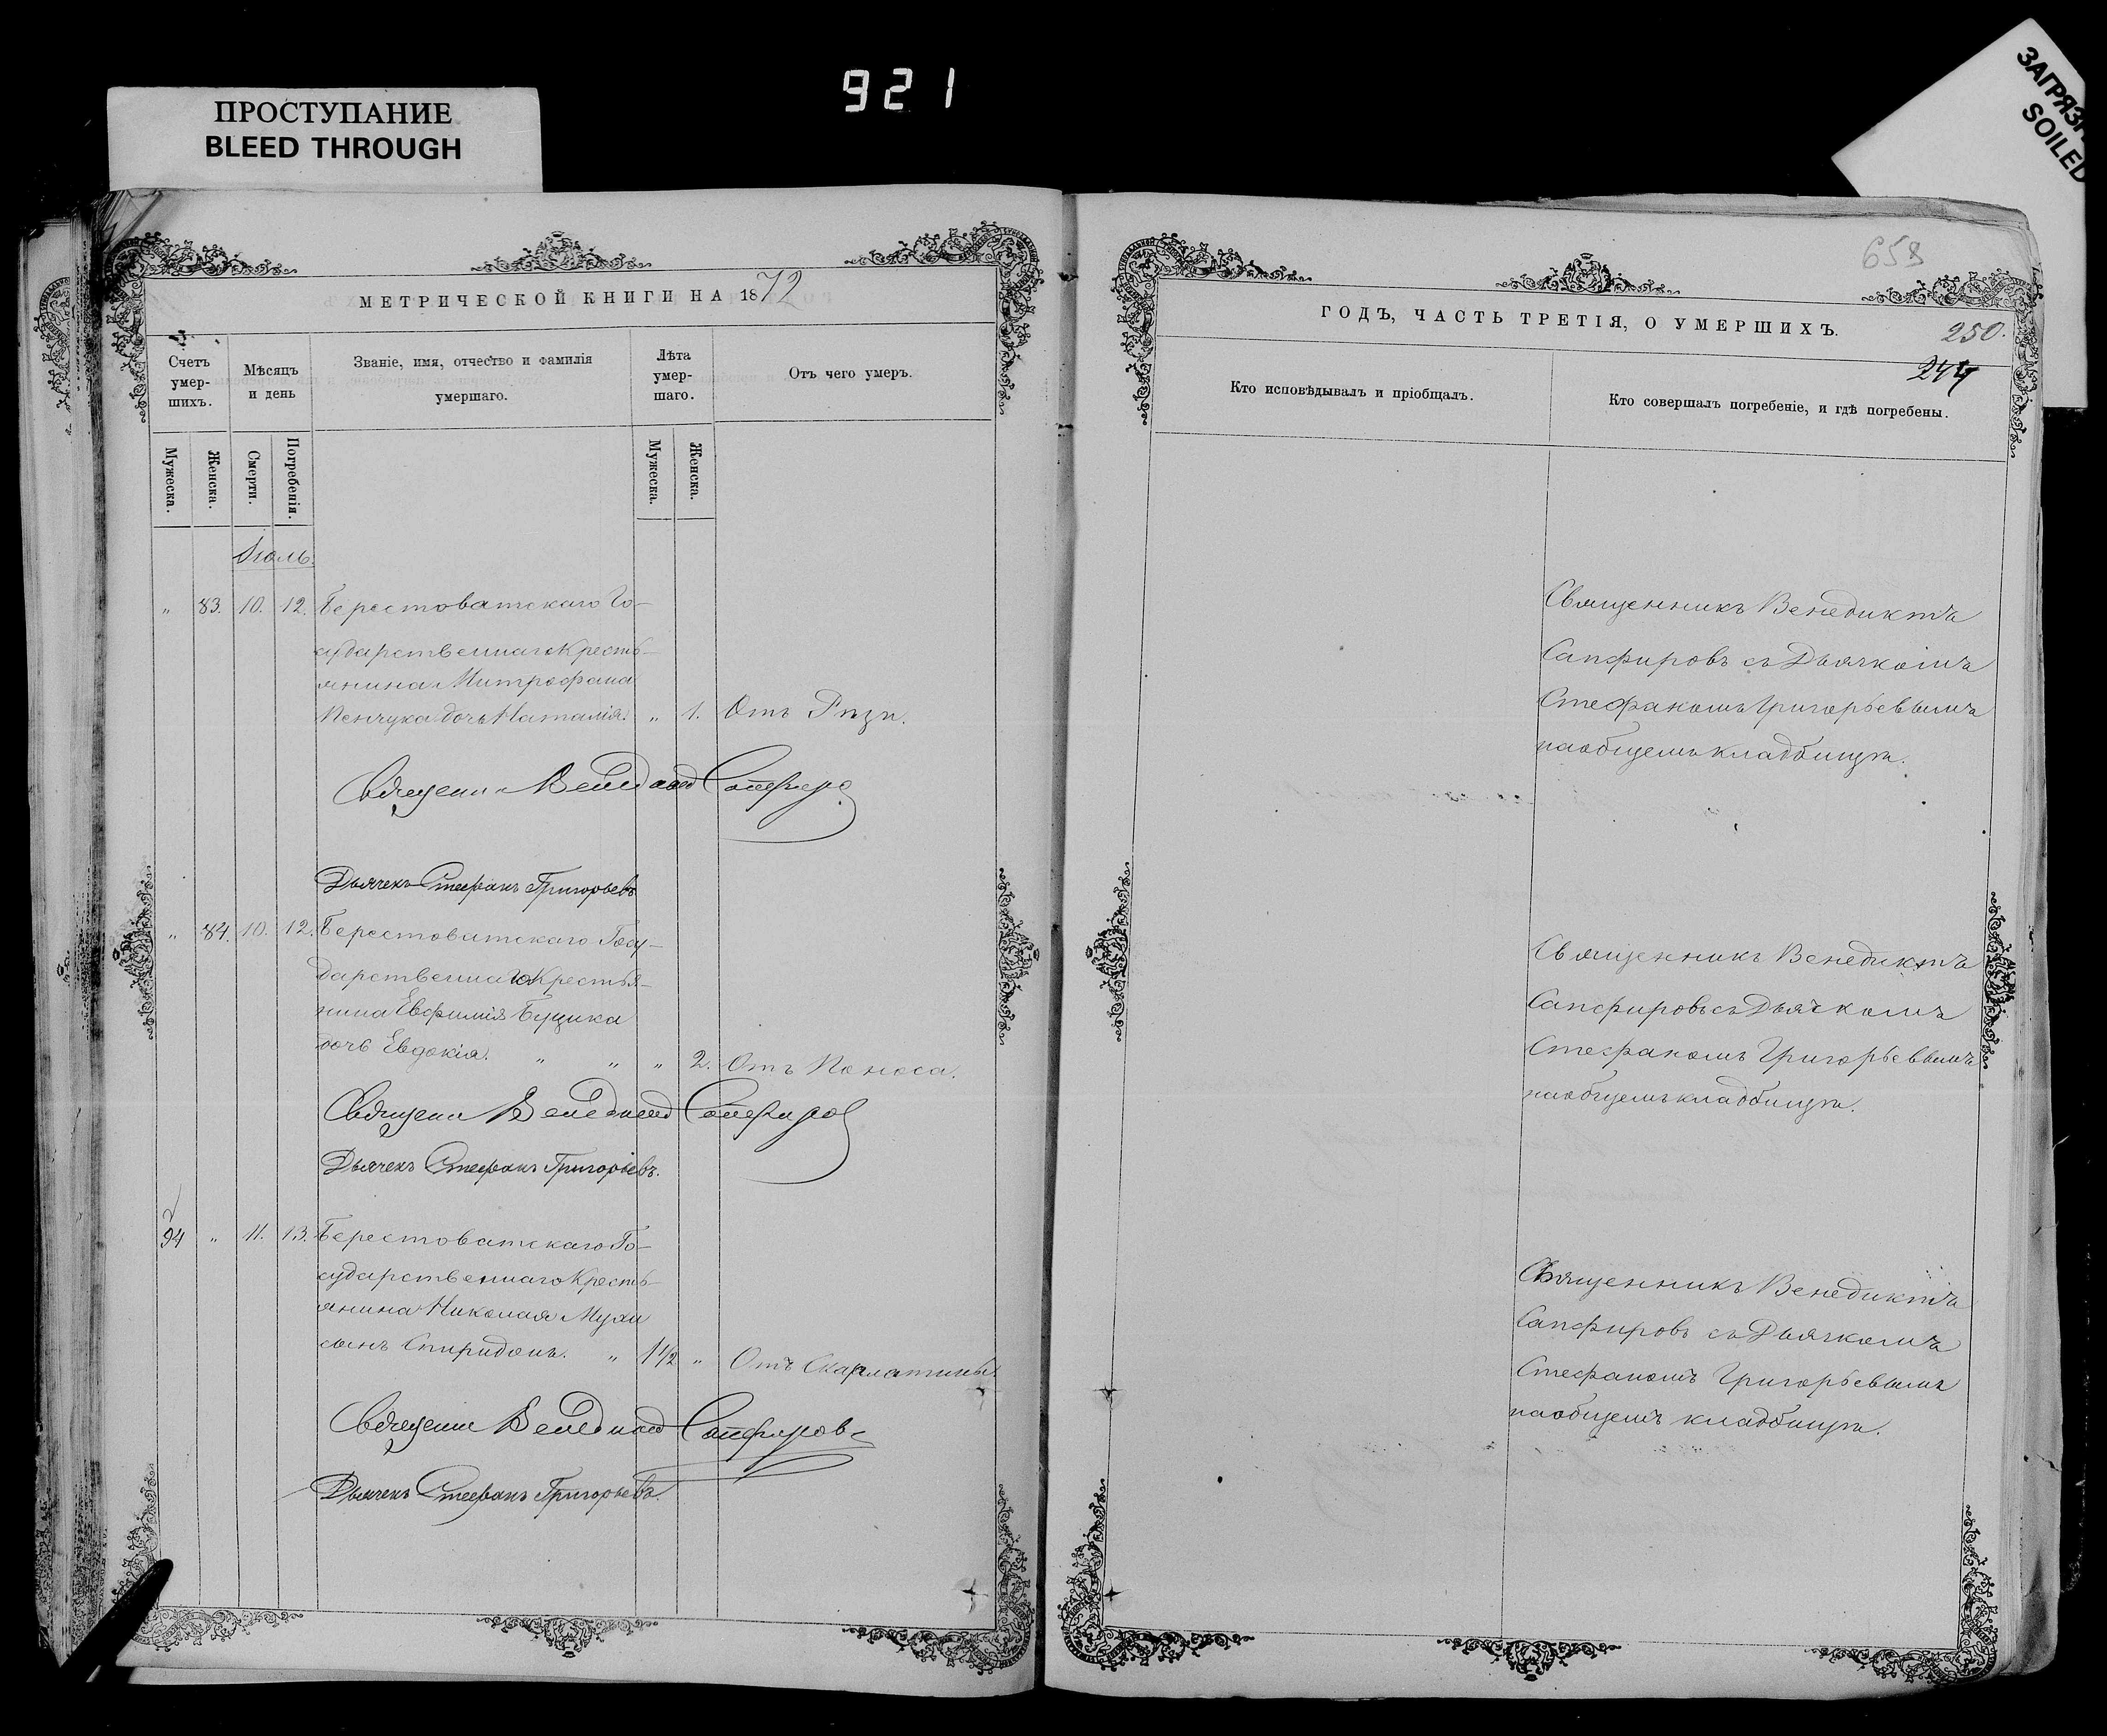 921
ПРОСТУПАНИЕ
BLEED THROUGH
SOILED
МЕТРИЧЕСКОЙ КНИГИ НА 1872
Счетъ умер-шихъ.
Мѣсяцъ и день
Званіе, имя, отчество и фамилія умершаго.
Лѣта умер-шаго.
Отъ чего умеръ.
Мужеска.
Женска.
Смерти.
Погребенія.
Мужеска.
Женска.
Іюль.
" 83. 10. 12. Берестоватскаго Го-
сударственнаго Кресть-
янина Митрофана
дочь Наталія. " 1. Отъ
Венедикт Сапфиро
Дьячекъ Стефанъ Григорьевъ
" 84. 10. 12. Берестоватскаго Госу-
дарственнаго Крестья-
нина Евфимія Буцика
дочь Евдокія. " " " 2. Отъ Поноса.
Венедикт Сапфиров
Дьячекъ Стефанъ Григорьевъ.
94 " 11. 13. Берестоватскаго Го-
сударственнаго Кресть-
янина Николая Мухи
сынъ Спиридонъ. " 1½ " Отъ Скарлатины.
Венедикт Сапфиров
Дьячекъ Стефанъ Григорьевъ.
658
ГОДЪ, ЧАСТЬ ТРЕТІЯ, О УМЕРШИХЪ.
250.
244
Кто исповѣдывалъ и пріобщалъ.
Кто совершалъ погребеніе, и гдѣ погребены.
Священникъ Венедиктъ
Сапфировъ съ Дьячкомъ
Стефаномъ Григорьевымъ
на общемъ кладбищѣ.
Священникъ Венедиктъ
Сапфировъ съ Дьячкомъ
Стефаномъ Григорьевымъ
на общемъ кладбищѣ.
Священникъ Венедиктъ
Сапфировъ съ Дьячкомъ
Стефаномъ Григорьевымъ
на общемъ кладбищѣ.